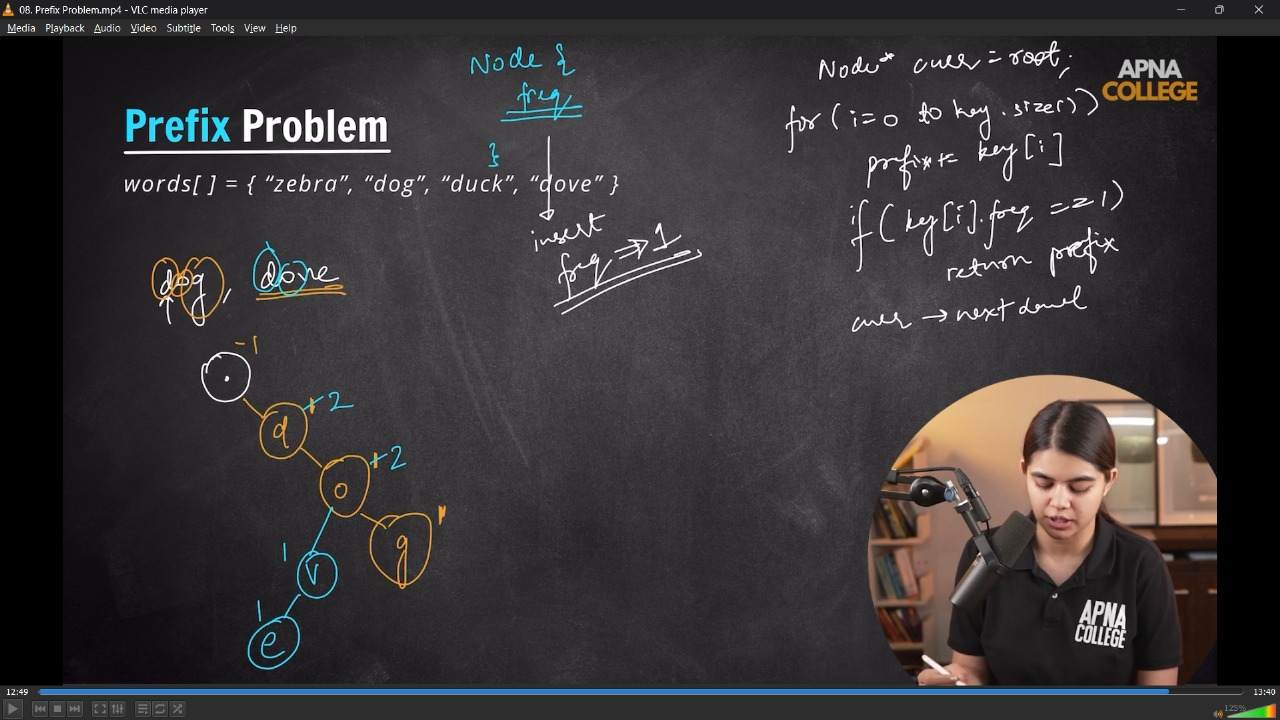 08. Prefix Problem.mp4 - VLC media player
Media Playback Audio Video Subtitle Tools View Help
Node {
freq
}
insert
freq ⇒ 1
Prefix Problem
words[ ] = { “zebra”, “dog”, “duck”, “dove” }
dog, dove
-1
d
1 2
o
1 2
g
1
v
1
e
1
Node* curr = root;
for ( i=0 to key.size())
prefix += key[i]
if ( key[i].freq == 1)
return prefix
curr → next level
APNA
COLLEGE
APNA
COLLEGE
12:49
13:40
125%